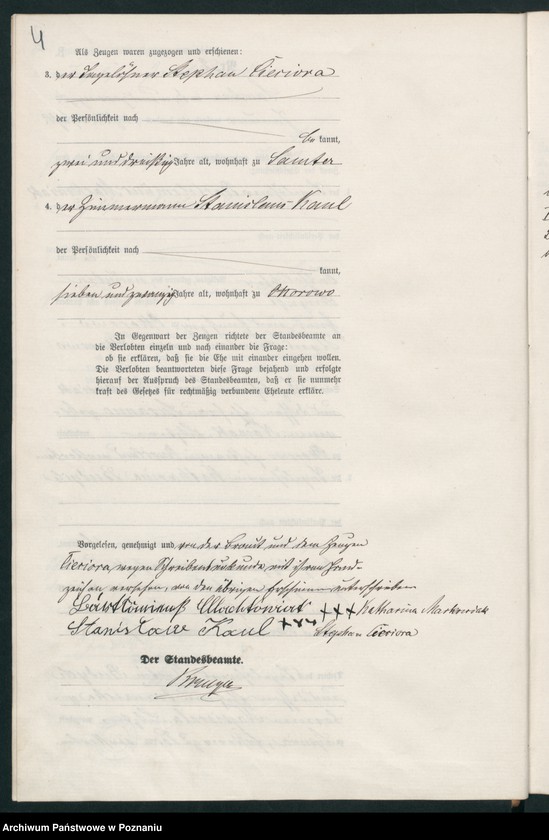 4
Als Zeugen waren zugezogen und erschienen:
3. der Tagelöhner Stephan Cieciora
der Persönlichkeit nach
be kannt,
zwei und dreißig Jahre alt, wohnhaft zu Samter
4. der Zimmermann Stanislaus Kaul
der Persönlichkeit nach
kannt,
sieben und zwanzig Jahre alt, wohnhaft zu Otorowo
In Gegenwart der Zeugen richtete der Standesbeamte an
die Verlobten einzeln und nach einander die Frage:
ob sie erklären, daß sie die Ehe mit einander eingehen wollen.
Die Verlobten beantworteten diese Frage bejahend und erfolgte
hierauf der Ausspruch des Standesbeamten, daß er sie nunmehr
kraft des Gesetzes für rechtmäßig verbundene Eheleute erkläre.
Vorgelesen, genehmigt und von der Braut und dem Zeugen
Cieciora, wegen Schreibensunkunde mit ihrem Hand-
zeichen versehen, von den übrigen Erschienenen unterschrieben
+++ Katharina
Stanisław Kaul +++ Stephan Cieciora
Der Standesbeamte.
Archiwum Państwowe w Poznaniu